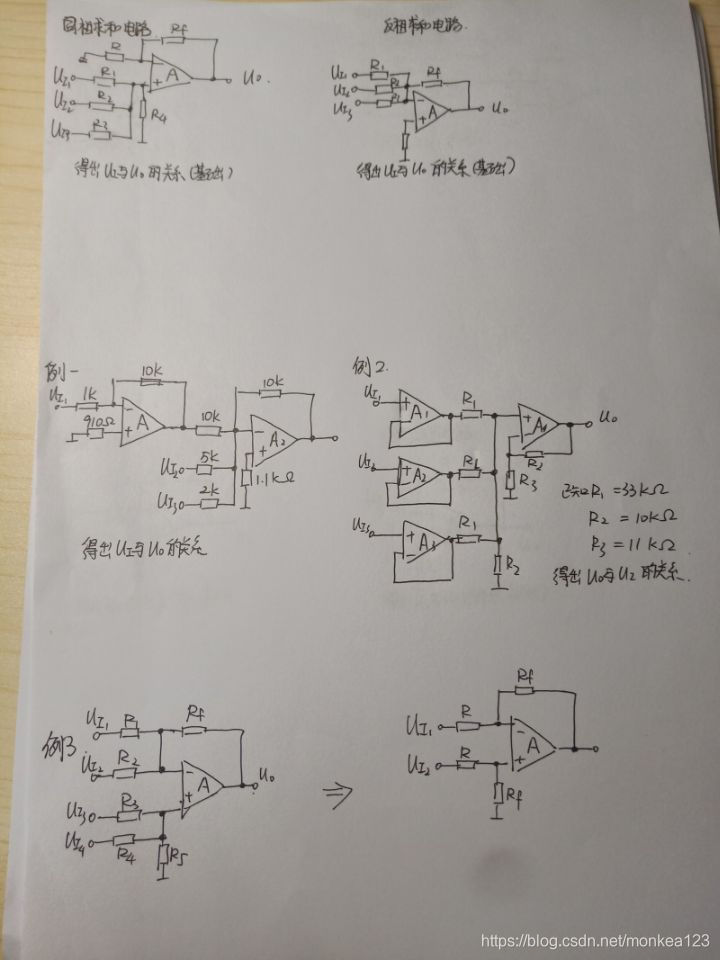 同相求和电路
R
Rf
UI1
R1
UI2
R2
UI3
R3
R4
A
Uo
得出UI与Uo的关系(基础)
反相求和电路
UI1
R1
UI3
Rf
A
Uo
得出UI与Uo的关系(基础)
例一
UI1
1k
10k
910Ω
A
10k
10k
UI2
5k
A2
UI3
2k
1.1kΩ
得出UI与Uo的关系
例2.
UI1
A1
R1
A4
Uo
UI2
A2
R2
R3
UI3
A3
R1
R2
已知R1=33kΩ
R2=10kΩ
R3=11kΩ
得出Uo与UI的关系.
例3
UI1
R1
Rf
UI2
R2
A
Uo
UI3
R3
UI4
R4
R5
⇒
UI1
R
Rf
UI2
R
A
Rf
https://blog.csdn.net/monkea123